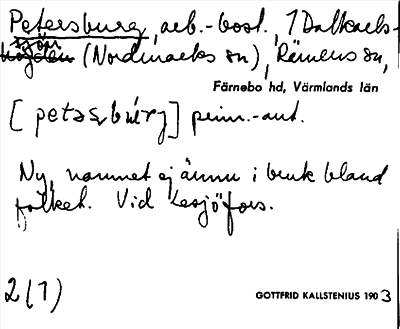 Petersburg, arb.-bost., 1 Dalkarls-
sjön (Nordmarks sn), Rämens sn,
Färnebo hd, Värmlands län
[petəʂbúrj] prim.-aut.
Ny, namnet ej ännu i bruk bland
folket. Vid Lesjöfors.
2(1)
GOTTFRID KALLSTENIUS 1903